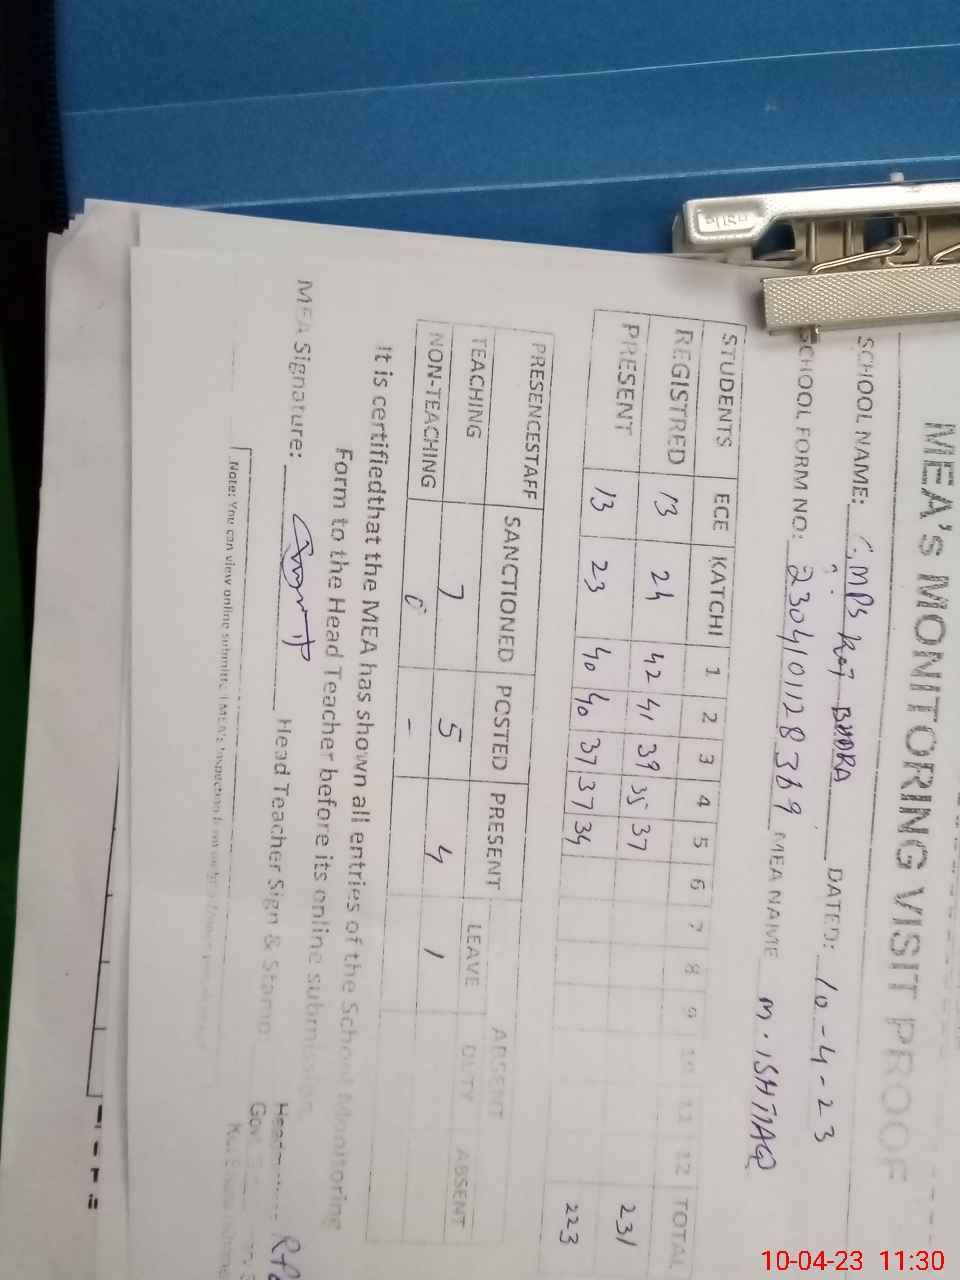 MEA'S MONITORING VISIT PROOF
SCHOOL NAME: GMPS Kot BUDRA DATED: 10-4-23
SCHOOL FORM NO: 2304101128369 MEA NAME M. ISHTIAQ
STUDENTS ECE KATCHI 1 2 3 4 5 6 7 8 9 10 11 12 TOTAL
REGISTRED 13 24 42 41 39 35 37 231
PRESENT 13 23 40 40 37 37 34 223
PRESENCESTAFF SANCTIONED POSTED PRESENT ABSENT
LEAVE DUTY ABSENT
TEACHING 7 5 4 1
NON-TEACHING 0 -
It is certifiedthat the MEA has shown all entries of the School Monitoring
Form to the Head Teacher before its online submission.
MEA Signature: Head Teacher Sign & Stamp:
Note: You can view online submitted MEA's Inspection
10-04-23 11:30